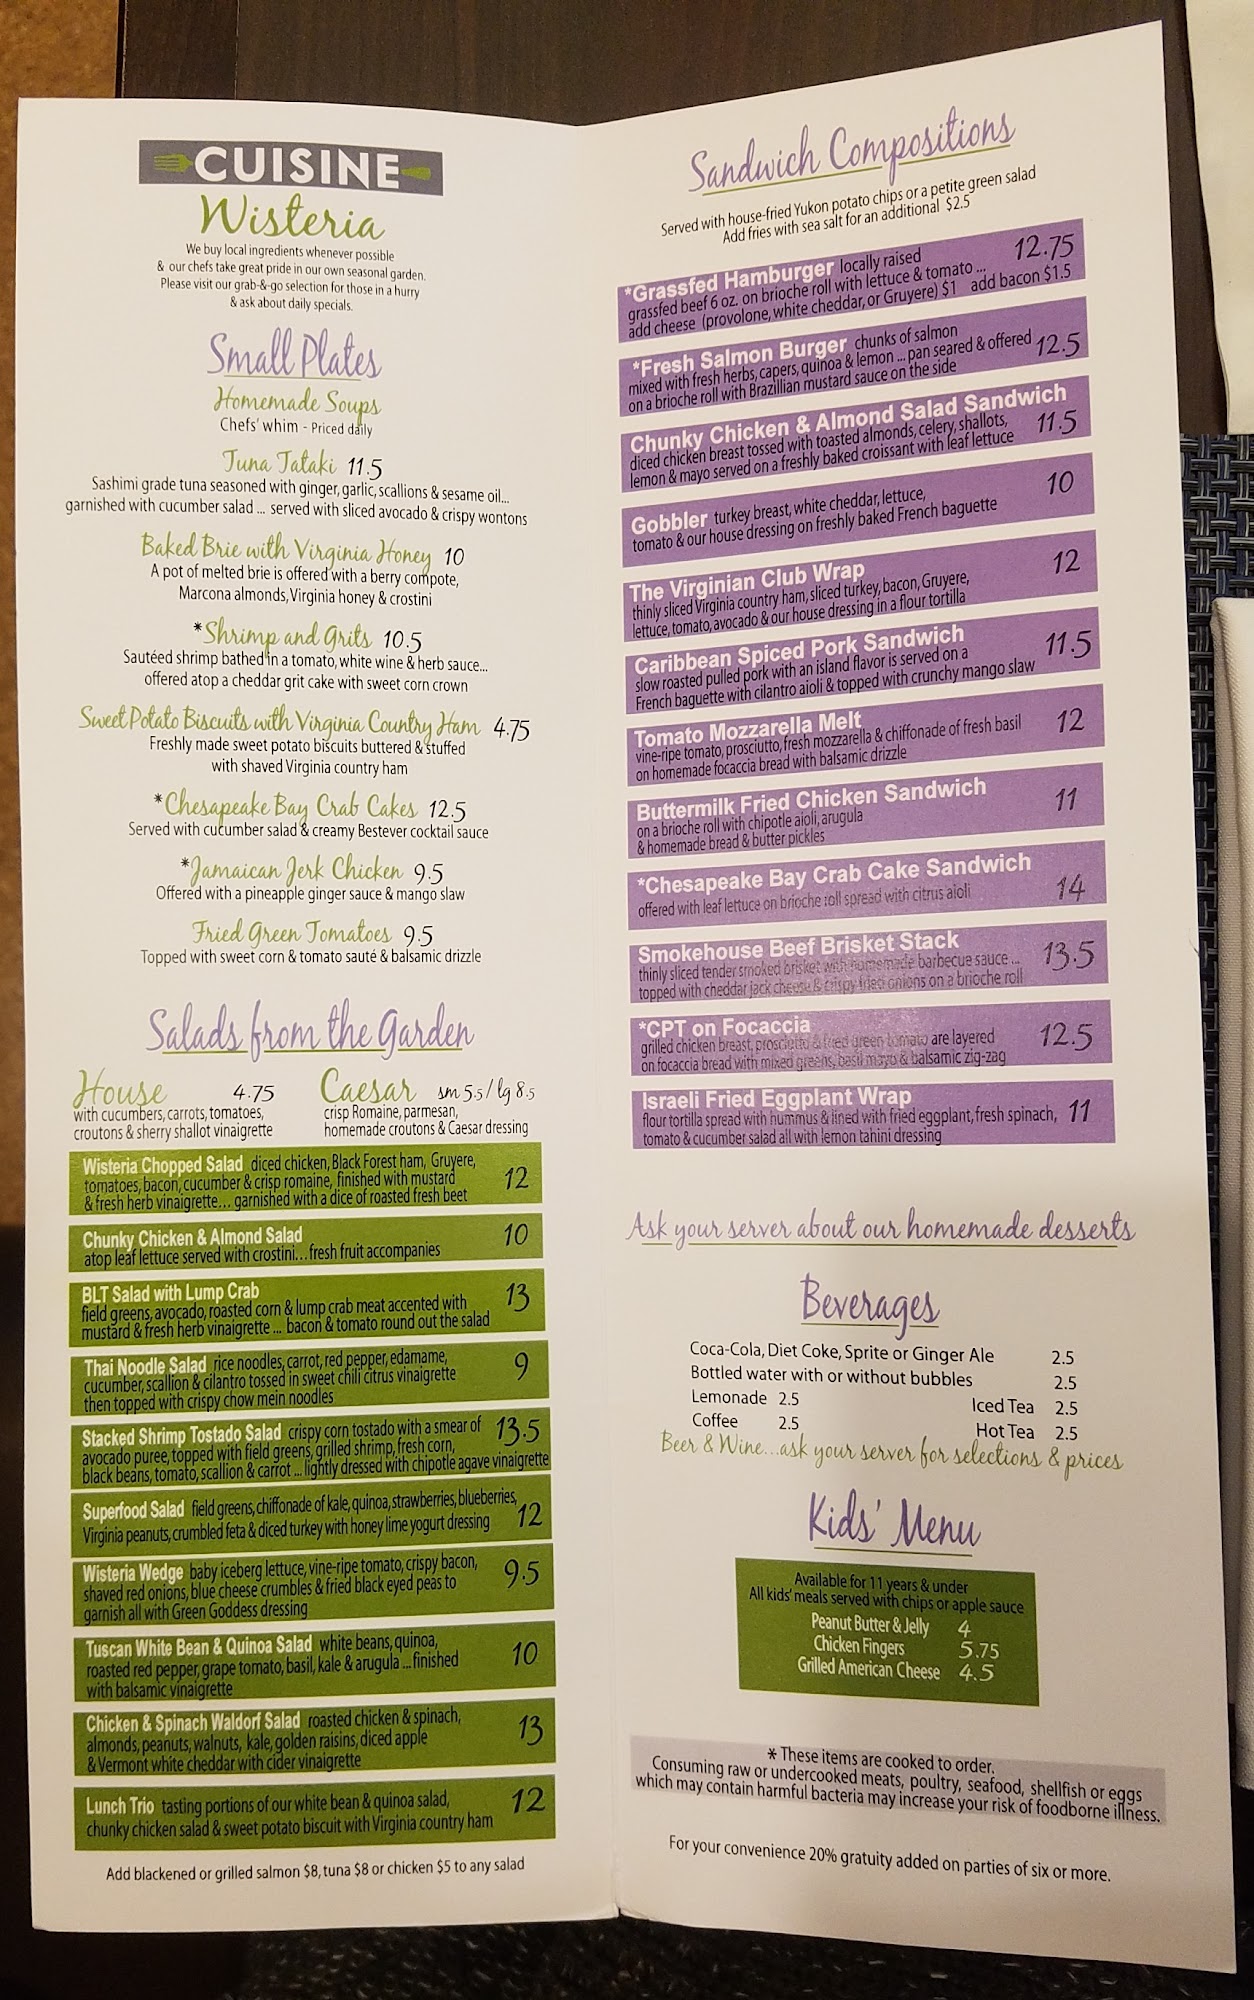 CUISINE
Wisteria
We buy local ingredients whenever possible
& our chefs take great pride in our own seasonal garden.
Please visit our grab-&-go selection for those in a hurry
& ask about daily specials.
Small Plates
Homemade Soups
Chefs' whim - Priced daily
Tuna Tataki 11.5
Sashimi grade tuna seasoned with ginger, garlic, scallions & sesame oil...
garnished with cucumber salad ... served with sliced avocado & crispy wontons
Baked Brie with Virginia Honey 10
A pot of melted brie is offered with a berry compote,
Marcona almonds, Virginia honey & crostini
*Shrimp and Grits 10.5
Sautéed shrimp bathed in a tomato, white wine & herb sauce...
offered atop a cheddar grit cake with sweet corn crown
Sweet Potato Biscuits with Virginia Country Ham 4.75
Freshly made sweet potato biscuits buttered & stuffed
with shaved Virginia country ham
*Chesapeake Bay Crab Cakes 12.5
Served with cucumber salad & creamy Bestever cocktail sauce
*Jamaican Jerk Chicken 9.5
Offered with a pineapple ginger sauce & mango slaw
Fried Green Tomatoes 9.5
Topped with sweet corn & tomato sauté & balsamic drizzle
Salads from the Garden
House 4.75
with cucumbers, carrots, tomatoes,
croutons & sherry shallot vinaigrette
Caesar sm 5.5/ lg 8.5
crisp Romaine, parmesan,
homemade croutons & Caesar dressing
Wisteria Chopped Salad diced chicken, Black Forest ham, Gruyere,
tomatoes, bacon, cucumber & crisp romaine, finished with mustard 12
& fresh herb vinaigrette... garnished with a dice of roasted fresh beet
Chunky Chicken & Almond Salad 10
atop leaf lettuce served with crostini...fresh fruit accompanies
BLT Salad with Lump Crab 13
field greens, avocado, roasted corn & lump crab meat accented with
mustard & fresh herb vinaigrette ... bacon & tomato round out the salad
Thai Noodle Salad rice noodles, carrot, red pepper, edamame, 9
cucumber, scallion & cilantro tossed in sweet chili citrus vinaigrette
then topped with crispy chow mein noodles
Stacked Shrimp Tostado Salad crispy corn tostado with a smear of 13.5
avocado puree, topped with field greens, grilled shrimp, fresh corn,
black beans, tomato, scallion & carrot ... lightly dressed with chipotle agave vinaigrette
Superfood Salad field greens, chiffonade of kale, quinoa, strawberries, blueberries, 12
Virginia peanuts, crumbled feta & diced turkey with honey lime yogurt dressing
Wisteria Wedge baby iceberg lettuce, vine-ripe tomato, crispy bacon, 9.5
shaved red onions, blue cheese crumbles & fried black eyed peas to
garnish all with Green Goddess dressing
Tuscan White Bean & Quinoa Salad white beans, quinoa, 10
roasted red pepper, grape tomato, basil, kale & arugula ... finished
with balsamic vinaigrette
Chicken & Spinach Waldorf Salad roasted chicken & spinach, 13
almonds, peanuts, walnuts, kale, golden raisins, diced apple
& Vermont white cheddar with cider vinaigrette
Lunch Trio tasting portions of our white bean & quinoa salad, 12
chunky chicken salad & sweet potato biscuit with Virginia country ham
Add blackened or grilled salmon $8, tuna $8 or chicken $5 to any salad
Sandwich Compositions
Served with house-fried Yukon potato chips or a petite green salad
Add fries with sea salt for an additional $2.5
*Grassfed Hamburger locally raised 12.75
grassfed beef 6 oz. on brioche roll with lettuce & tomato ...
add cheese (provolone, white cheddar, or Gruyere) $1 add bacon $1.5
*Fresh Salmon Burger chunks of salmon 12.5
mixed with fresh herbs, capers, quinoa & lemon ... pan seared & offered
on a brioche roll with Brazillian mustard sauce on the side
Chunky Chicken & Almond Salad Sandwich
diced chicken breast tossed with toasted almonds, celery, shallots, 11.5
lemon & mayo served on a freshly baked croissant with leaf lettuce
Gobbler turkey breast, white cheddar, lettuce, 10
tomato & our house dressing on freshly baked French baguette
The Virginian Club Wrap 12
thinly sliced Virginia country ham, sliced turkey, bacon, Gruyere,
lettuce, tomato, avocado & our house dressing in a flour tortilla
Caribbean Spiced Pork Sandwich 11.5
slow roasted pulled pork with an island flavor is served on a
French baguette with cilantro aioli & topped with crunchy mango slaw
Tomato Mozzarella Melt 12
vine-ripe tomato, prosciutto, fresh mozzarella & chiffonade of fresh basil
on homemade focaccia bread with balsamic drizzle
Buttermilk Fried Chicken Sandwich 11
on a brioche roll with chipotle aioli, arugula
& homemade bread & butter pickles
*Chesapeake Bay Crab Cake Sandwich 14
offered with leaf lettuce on brioche roll spread with citrus aioli
Smokehouse Beef Brisket Stack 13.5
thinly sliced tender smoked brisket with homemade barbecue sauce ...
topped with cheddar jack cheese & crispy fried onions on a brioche roll
*CPT on Focaccia 12.5
grilled chicken breast, prosciutto & fried green tomato are layered
on focaccia bread with mixed greens, basil mayo & balsamic zig-zag
Israeli Fried Eggplant Wrap 11
flour tortilla spread with hummus & lined with fried eggplant, fresh spinach,
tomato & cucumber salad all with lemon tahini dressing
Ask your server about our homemade desserts
Beverages
Coca-Cola, Diet Coke, Sprite or Ginger Ale 2.5
Bottled water with or without bubbles 2.5
Lemonade 2.5 Iced Tea 2.5
Coffee 2.5 Hot Tea 2.5
Beer & Wine...ask your server for selections & prices
Kids' Menu
Available for 11 years & under
All kids' meals served with chips or apple sauce
Peanut Butter & Jelly 4
Chicken Fingers 5.75
Grilled American Cheese 4.5
* These items are cooked to order.
Consuming raw or undercooked meats, poultry, seafood, shellfish or eggs
which may contain harmful bacteria may increase your risk of foodborne illness.
For your convenience 20% gratuity added on parties of six or more.